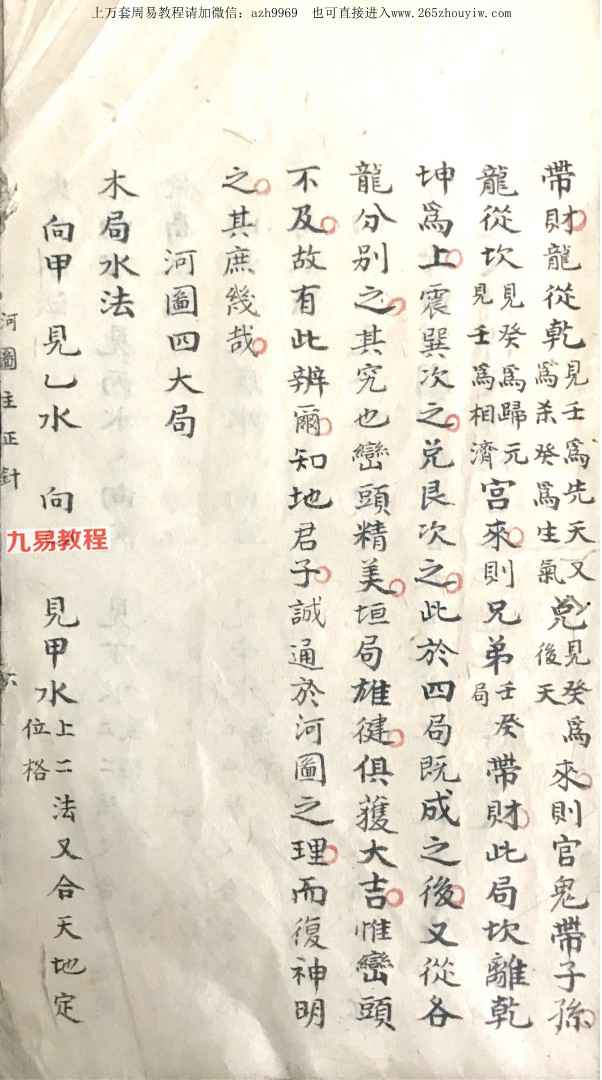 上万套周易教程请加微信：azh9969 也可直接进入www.265zhouyiw.com
帶財龍從乾見壬爲先天又爲杀癸爲生氣兌見癸爲後天來則官鬼帶子孫
龍從坎見癸爲歸元見壬爲相濟宮來則兄弟壬癸局帶財此局坎離乾
坤爲上震巽次之兌艮次之此於四局既成之後又從各
龍分別之其究也巒頭精美垣局雄健俱獲大吉惟巒頭
不及故有此辨爾知地君子誠通於河圖之理而復神明
之其庶幾哉
河圖四大局
木局水法
向甲 見乙水 向 見甲水上二法又合天地定位格
河圖主正針
九易教程